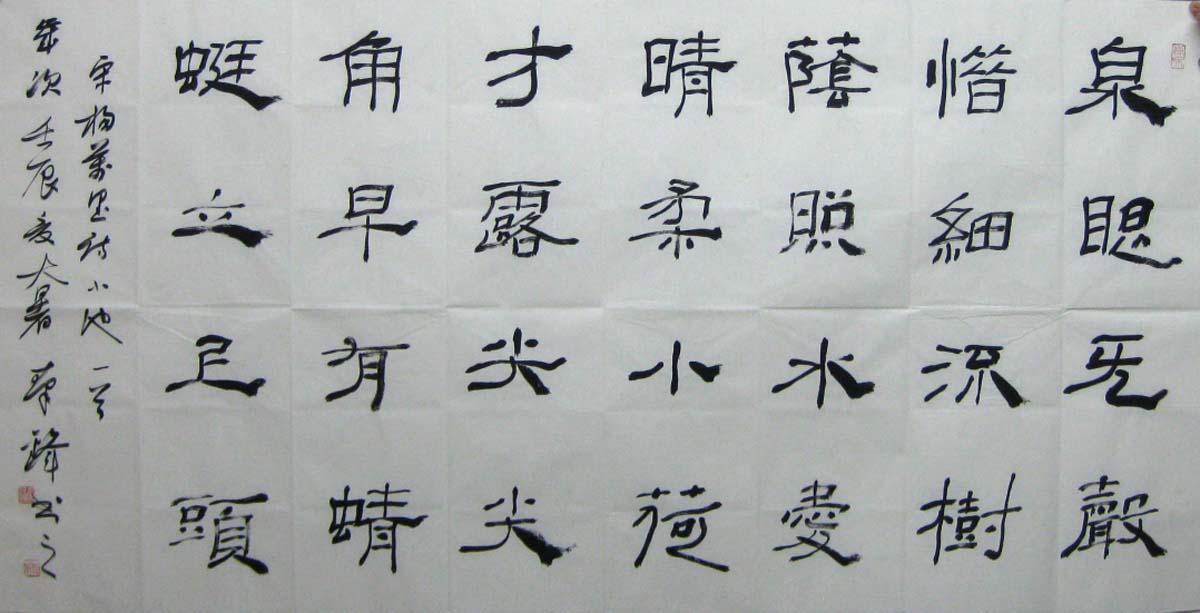 泉眼无聲
惜細流樹
蔭照水愛
晴柔小荷
才露尖尖
角早有蜻
蜓立上頭
宋楊萬里詩小池一首
歲次壬辰夏大暑鋒书之